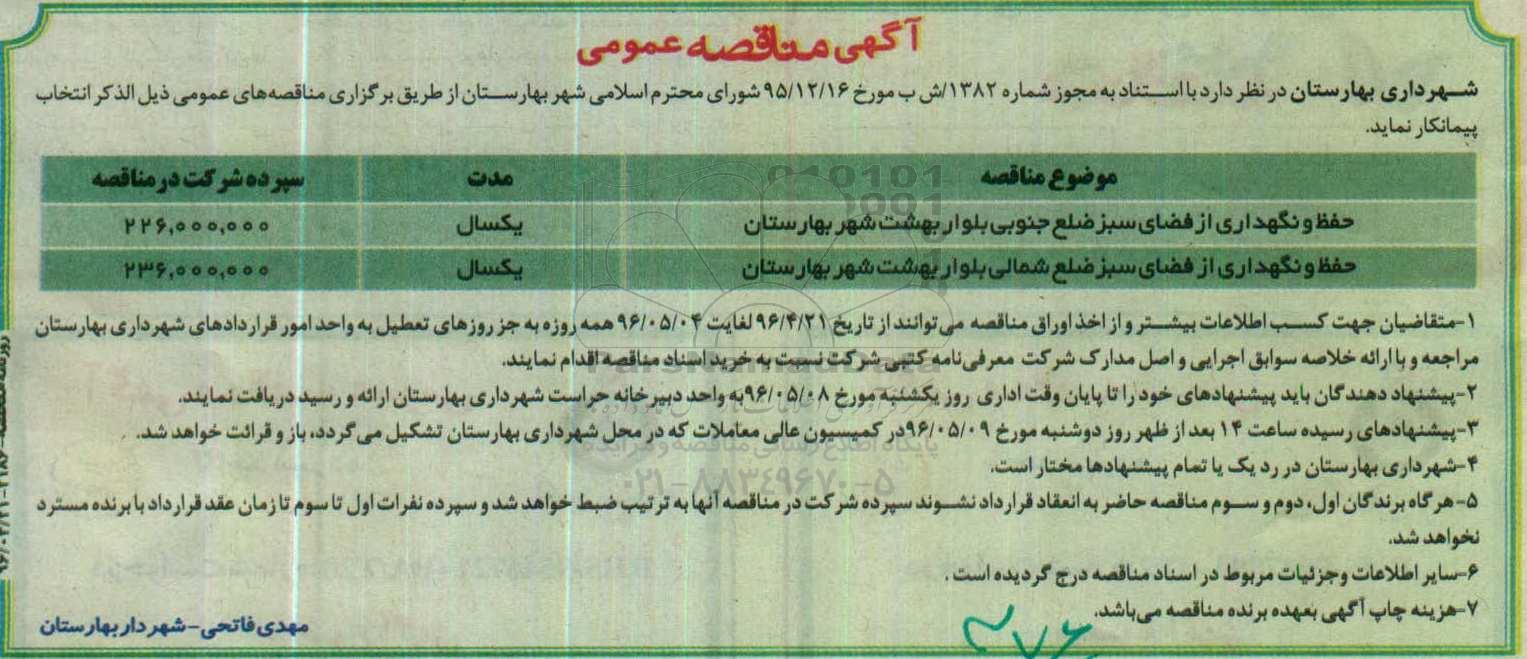 آگهی مناقصه عمومی
شهرداری بهارستان در نظر دارد با استناد به مجوز شماره ۱۳۸۲/ش ب مورخ ۹۵/۱۲/۱۶ شورای محترم اسلامی شهر بهارستان از طریق برگزاری مناقصه‌های عمومی ذیل الذکر انتخاب
پیمانکار نماید.
موضوع مناقصه مدت سپرده شرکت در مناقصه
حفظ و نگهداری از فضای سبز ضلع جنوبی بلوار بهشت شهر بهارستان یکسال ۲۲۶,۰۰۰,۰۰۰
حفظ و نگهداری از فضای سبز ضلع شمالی بلوار بهشت شهر بهارستان یکسال ۲۳۶,۰۰۰,۰۰۰
۱-متقاضیان جهت کسب اطلاعات بیشتر و از اخذ اوراق مناقصه می‌توانند از تاریخ ۹۶/۴/۲۱ لغایت ۹۶/۰۵/۰۴ همه روزه به جز روزهای تعطیل به واحد امور قراردادهای شهرداری بهارستان
مراجعه و با ارائه خلاصه سوابق اجرایی و اصل مدارک شرکت معرفی‌نامه کتبی شرکت نسبت به خرید اسناد مناقصه اقدام نمایند.
۲-پیشنهاد دهندگان باید پیشنهادهای خود را تا پایان وقت اداری روز یکشنبه مورخ ۹۶/۰۵/۰۸ به واحد دبیرخانه حراست شهرداری بهارستان ارائه و رسید دریافت نمایند.
۳-پیشنهادهای رسیده ساعت ۱۴ بعد از ظهر روز دوشنبه مورخ ۹۶/۰۵/۰۹ در کمیسیون عالی معاملات که در محل شهرداری بهارستان تشکیل می‌گردد، باز و قرائت خواهد شد.
پایگاه اطلاع رسانی مناقصه و مزایده
۴-شهرداری بهارستان در رد یک یا تمام پیشنهادها مختار است.
۰۲۱-۸۸۳۴۹۶۷۰-۵
۵-هرگاه برندگان اول، دوم و سوم مناقصه حاضر به انعقاد قرارداد نشوند سپرده شرکت در مناقصه آنها به ترتیب ضبط خواهد شد و سپرده نفرات اول تا سوم تا زمان عقد قرارداد با برنده مسترد
نخواهد شد.
۶-سایر اطلاعات وجزئیات مربوط در اسناد مناقصه درج گردیده است .
۷-هزینه چاپ آگهی بعهده برنده مناقصه می‌باشد.
مهدی فاتحی-شهردار بهارستان
۳۷۶